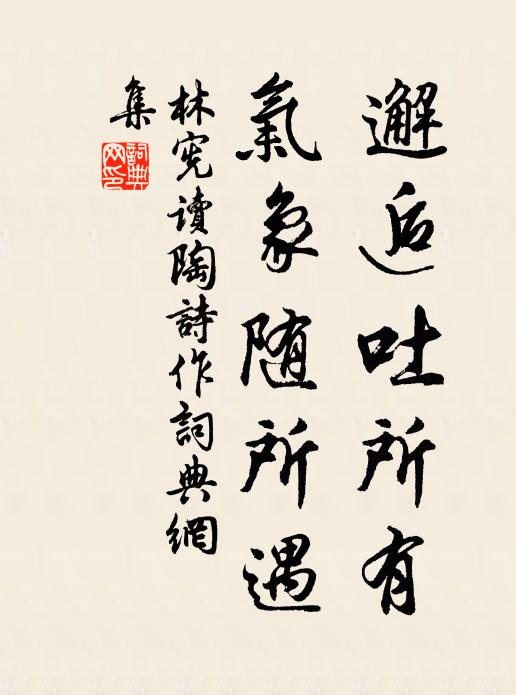 邂逅吐所有
氣象随所遇
林宪讀陶詩作詞典網
集
詞典网印